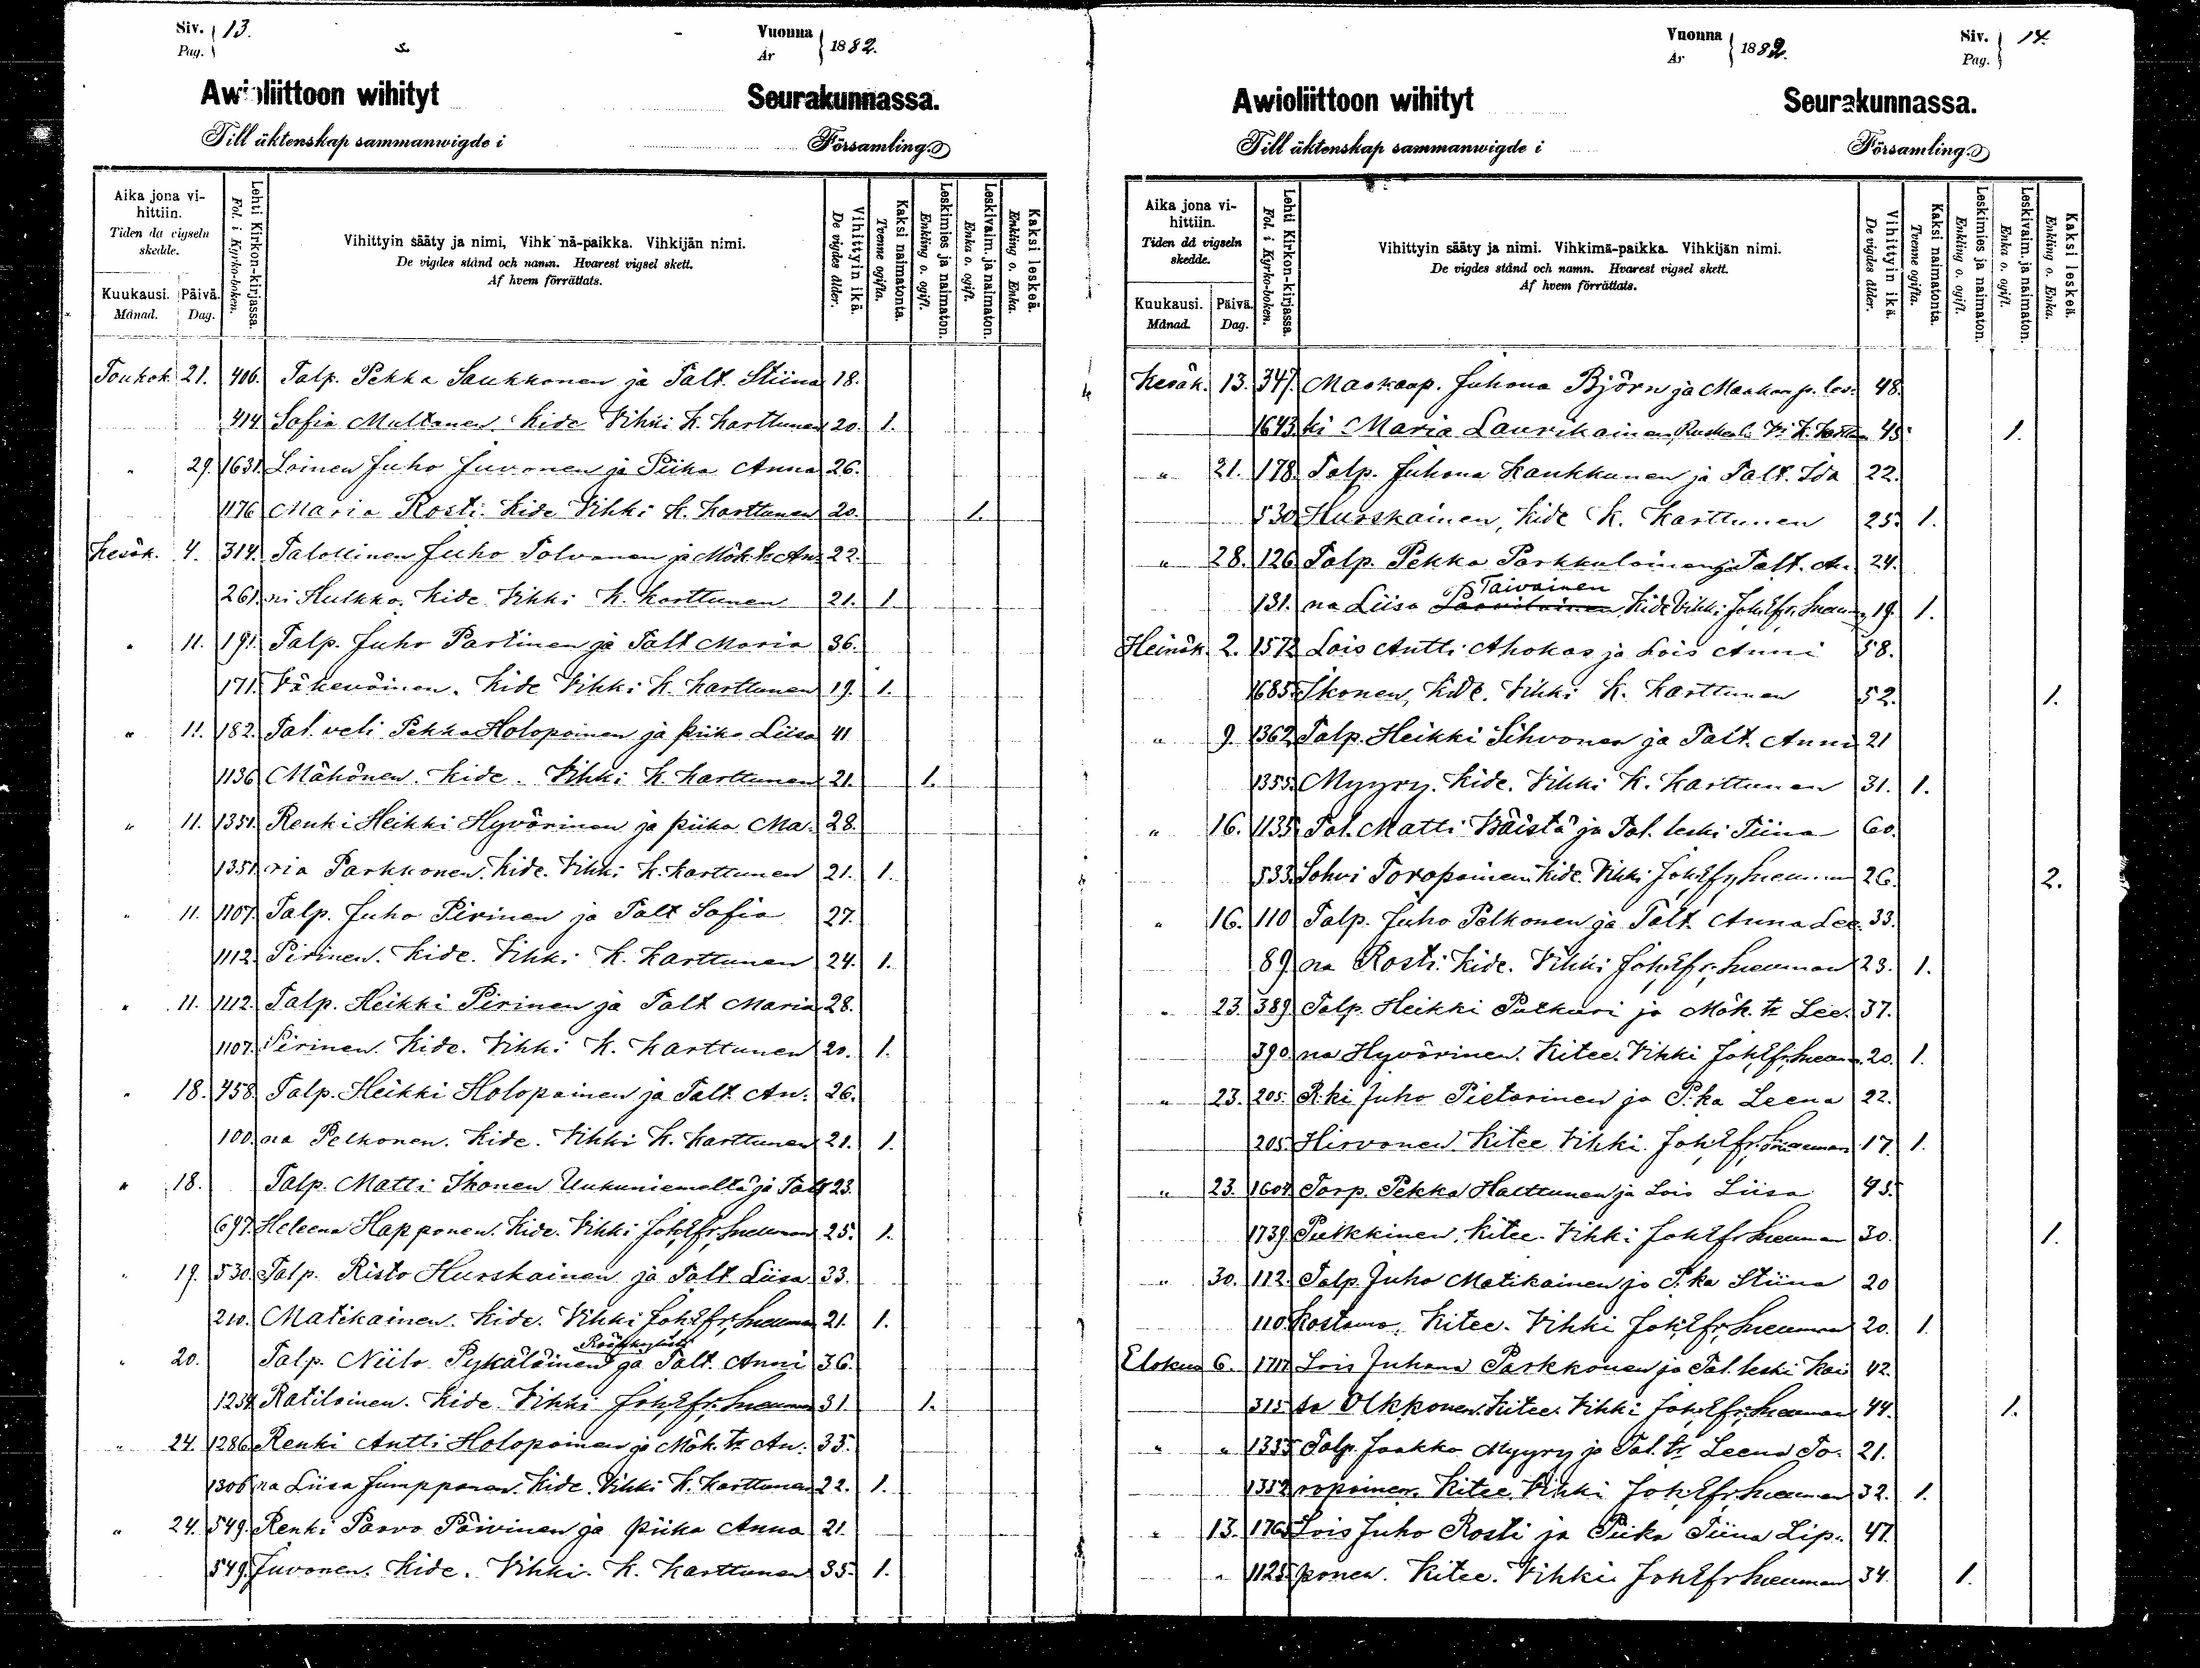 Siv. 13.
Pag.
Vuonna 1882.
År
Awioliittoon wihityt Seurakunnassa.
Till äktenskap sammanwigde i Församling.
Aika jona vihittiin.
Tiden da vigseln skedde.
Kuukausi. Månad.
Päivä. Dag.
Lehti Kirkon-kirjassa.
Fol. i Kyrko-boken.
Vihittyin sääty ja nimi, Vihk nä-paikka. Vihkijän nimi.
De vigdes stånd och namn. Hvarest vigsel skett.
Af hvem förrättats.
Vihittyin ikä.
De vigdes ålder.
Kaksi naimatonta.
Tvenne ogifta.
Leskimies ja naimaton.
Enkling o. ogift.
Leskivaim. ja naimaton.
Enka o. ogift.
Kaksi leskeä.
Enkling o. Enka.
Toukok. 21. 406. Talp. Pekka Saukkonen ja Talt. Stiina 18.
414 Sofia Multanen. Kide Vihki K. Karttunen 20. 1.
" 29. 1631. Loinen Juho Juvonen ja Piika Anna 26.
1176 Maria Rosti. Kide Vihki K. Karttunen 20. 1.
Kesäk. 4. 314. Talollinen Juho Tolvanen ja Mök. tr An- 22.
261. ni Hulkko. Kide Vihki K. Karttunen 21. 1.
" 11. 191. Talp. Juho Partinen ja Talt Maria 36.
171. Väkeväinen. Kide Vihki K. Karttunen 19. 1.
" 11. 182. Tal. veli Pekka Holopainen ja piika Liisa 41
1136 Mähönen. Kide. Vihki K. Karttunen 21. 1.
" 11. 1351. Renki Heikki Hyvärinen ja piika Ma- 28.
1351. ria Parkkonen. Kide. Vihki K. Karttunen 21. 1.
" 11. 1107. Talp. Juho Pirinen ja Talt Sofia 27.
1112. Pirinen. Kide. Vihki K. Karttunen 24. 1.
" 11. 1112. Talp. Heikki Pirinen ja Talt Maria 28.
1107. Pirinen. Kide. Vihki K. Karttunen 20. 1.
" 18. 458. Talp. Heikki Holopainen ja Talt. An- 26.
100. na Pelkonen. Kide. Vihki K. Karttunen 21. 1.
" 18. Talp. Matti Ikonen Uukuniemeltä ja Talt 23.
697. Heleena Happonen. Kide. Vihki Joh. Efr. Sneuman 25. 1.
" 19. 530. Talp. Risto Hurskainen ja Talt. Liisa 33.
210. Matikainen. Kide. Vihki Joh. Efr. Sneuman 21. 1.
Rääkkylästä
" 20. Talp. Niilo Pykäläinen ja Talt. Anni 36.
1234 Ratilainen. Kide Vihki Joh. Efr. Sneuman 31. 1.
" 24. 1286. Renki Antti Holopainen ja Mök. tr An- 35.
1306 na Liisa Jumppanen. Kide. Vihki K. Karttunen 22. 1.
" 24. 549. Renki Paavo Päivinen ja piika Anna 21.
549. Juvonen. Kide. Vihki K. Karttunen 35. 1.
Vuonna 1882.
År
Siv. 14.
Pag.
Awioliittoon wihityt Seurakunnassa.
Till äktenskap sammanwigde i Församling.
Aika jona vihittiin.
Tiden då vigseln skedde.
Kuukausi. Månad.
Päivä. Dag.
Lehti Kirkon-kirjassa.
Fol. i Kyrko-boken.
Vihittyin sääty ja nimi. Vihkimä-paikka. Vihkijän nimi.
De vigdes stånd och namn. Hvarest vigsel skett.
Af hvem förrättats.
Vihittyin ikä.
De vigdes ålder.
Kaksi naimatonta.
Tvenne ogifta.
Leskimies ja naimaton.
Enkling o. ogift.
Leskivaim. ja naimaton.
Enka o. ogift.
Kaksi leskeä.
Enkling o. Enka.
Kesäk. 13. 347. Maakaup. Juhana Björn ja Maakaup. les- 48.
1643 ki Maria Laurikainen, Vi. K. 45 1.
" 21. 178. Talp. Juhana Kaukkunen ja Talt. Ida 22.
530 Hurskainen, Kide K. Karttunen 25. 1.
" 28. 126 Talp. Pekka Parkkulainen ja Talt. An- 24.
Taivainen
131. na Liisa Kide Vihki Joh. Efr. Sneuman 19. 1.
Heinäk. 2. 1572 Lois Antti Ahokas ja Lois Anni 58.
1685. Ikonen, Kide. Vihki K. Karttunen 52. 1.
" 9. 1362 Talp. Heikki Sihvonen ja Talt. Anni 21
1355. Myyry. Kide. Vihki K. Karttunen 31. 1.
" 16. 1135 Tal. Matti Väistö ja Tal. leski Tiina 60.
533. Sohvi Toropainen Kide. Vihki Joh. Efr. Sneuman 26. 2.
" 16. 110 Talp. Juho Pelkonen ja Talt. Anna Lee- 33.
89 na Rosti. Kide. Vihki Joh. Efr. Sneuman 23. 1.
" 23. 389 Talp. Heikki Putkuri ja Mök. tr Lee- 37.
390. na Hyvärinen. Kitee. Vihki Joh. Efr. Sneuman 20. 1.
" 23. 205. R:ki Juho Pietarinen ja P:ka Leena 22.
205. Hirvonen. Kitee Vihki. Joh. Efr. Sneuman 17. 1.
" 23. 1604 Torp. Pekka Halttunen ja Lois Liisa 45.
1739. Putkkinen. Kitee. Vihki Joh Efr Sneuman 30. 1.
" 30. 112. Talp. Juho Matikainen ja P:ka Stiina 20
110. Kostamo, Kitee. Vihki Joh. Efr. Sneuman 20. 1.
Elokuu 6. 1717 Lois Juhana Parkkonen ja Tal. leski Kai- 42.
315 sa Olkkonen. Kitee. Vihki Joh. Efr. Sneuman 44. 1.
" " 1355 Talp. Jaakko Myyry ja Tal. tr. Leena To- 21.
1352 ropainen. Kitee. Vihki Joh. Efr. Sneuman 32. 1.
" 13. 1763 Lois Juho Rosti ja Piika Tiina Lip- 47.
" 1125 ponen. Kitee. Vihki Joh Efr Sneuman 34. 1.